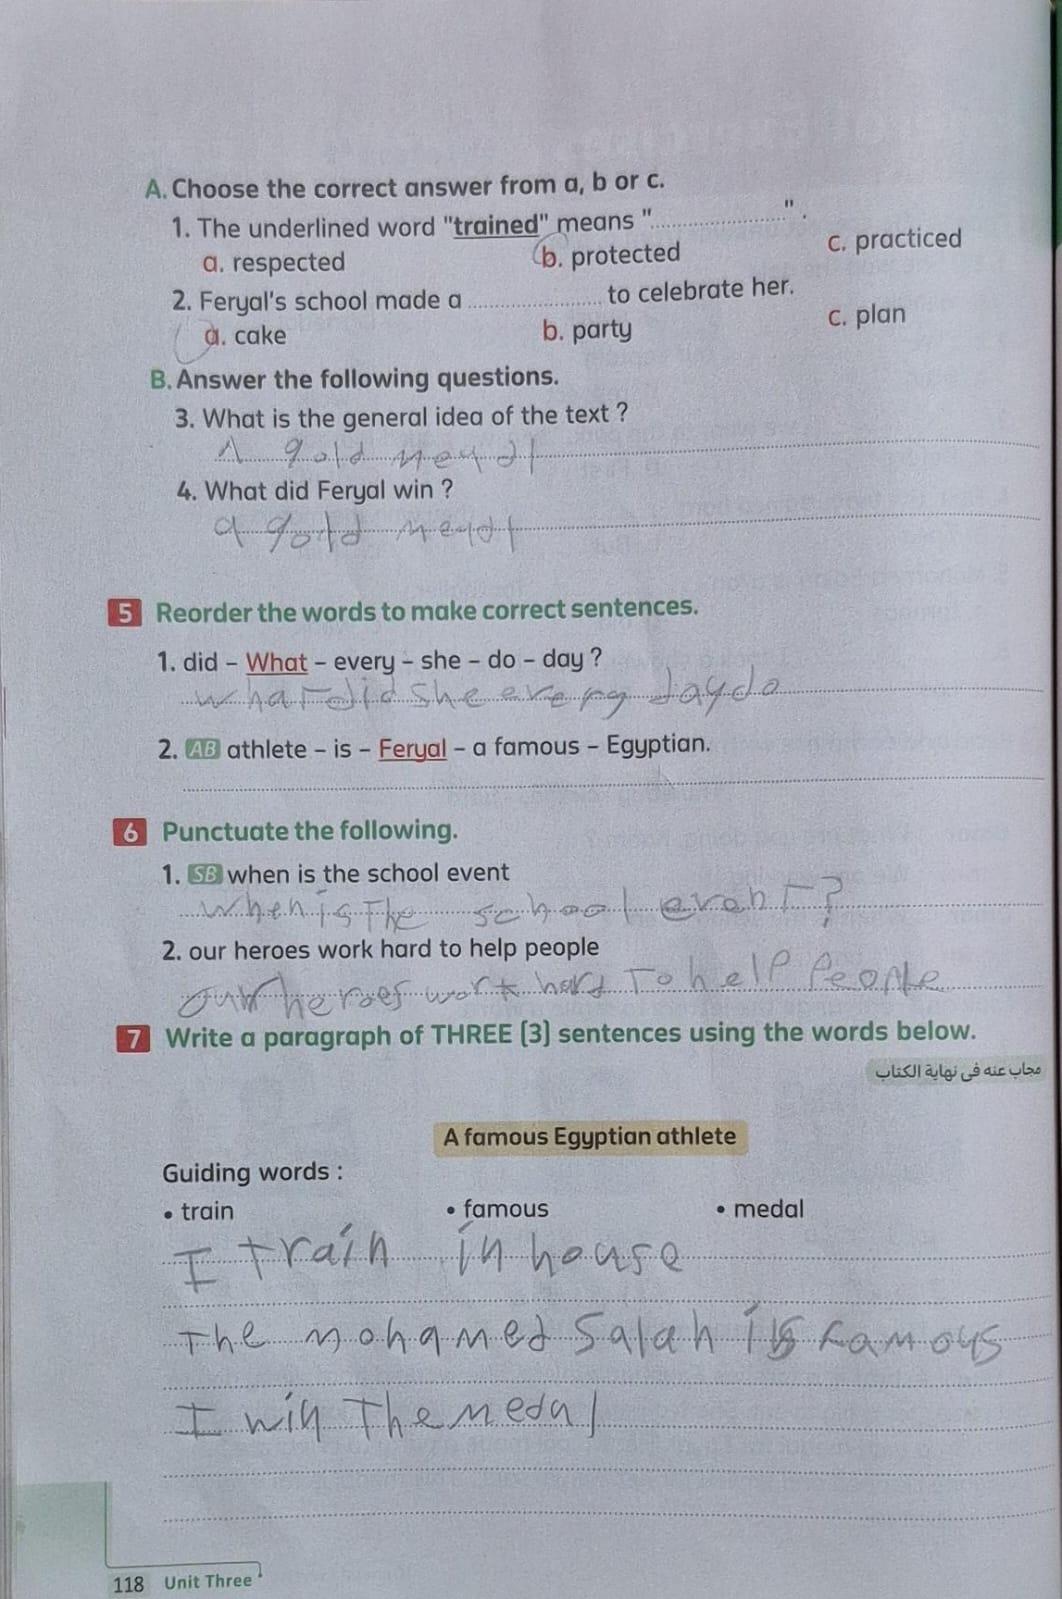 A. Choose the correct answer from a, b or c.
1. The underlined word "trained" means "....................".
a. respected b. protected c. practiced
2. Feryal's school made a .................... to celebrate her.
a. cake b. party c. plan
B. Answer the following questions.
3. What is the general idea of the text ?
A gold meqdl
4. What did Feryal win ?
a gold meqdl
5 Reorder the words to make correct sentences.
1. did – What – every – she – do – day ?
what did she every day do
2. AB athlete – is – Feryal – a famous – Egyptian.
6 Punctuate the following.
1. SB when is the school event
when is The school event?
2. our heroes work hard to help people
our heroes work hard To help People
7 Write a paragraph of THREE (3) sentences using the words below.
مجاب عنه فى نهاية الكتاب
A famous Egyptian athlete
Guiding words :
• train • famous • medal
I train in house
The mohamed Salah is famous
I win The medal
118 Unit Three